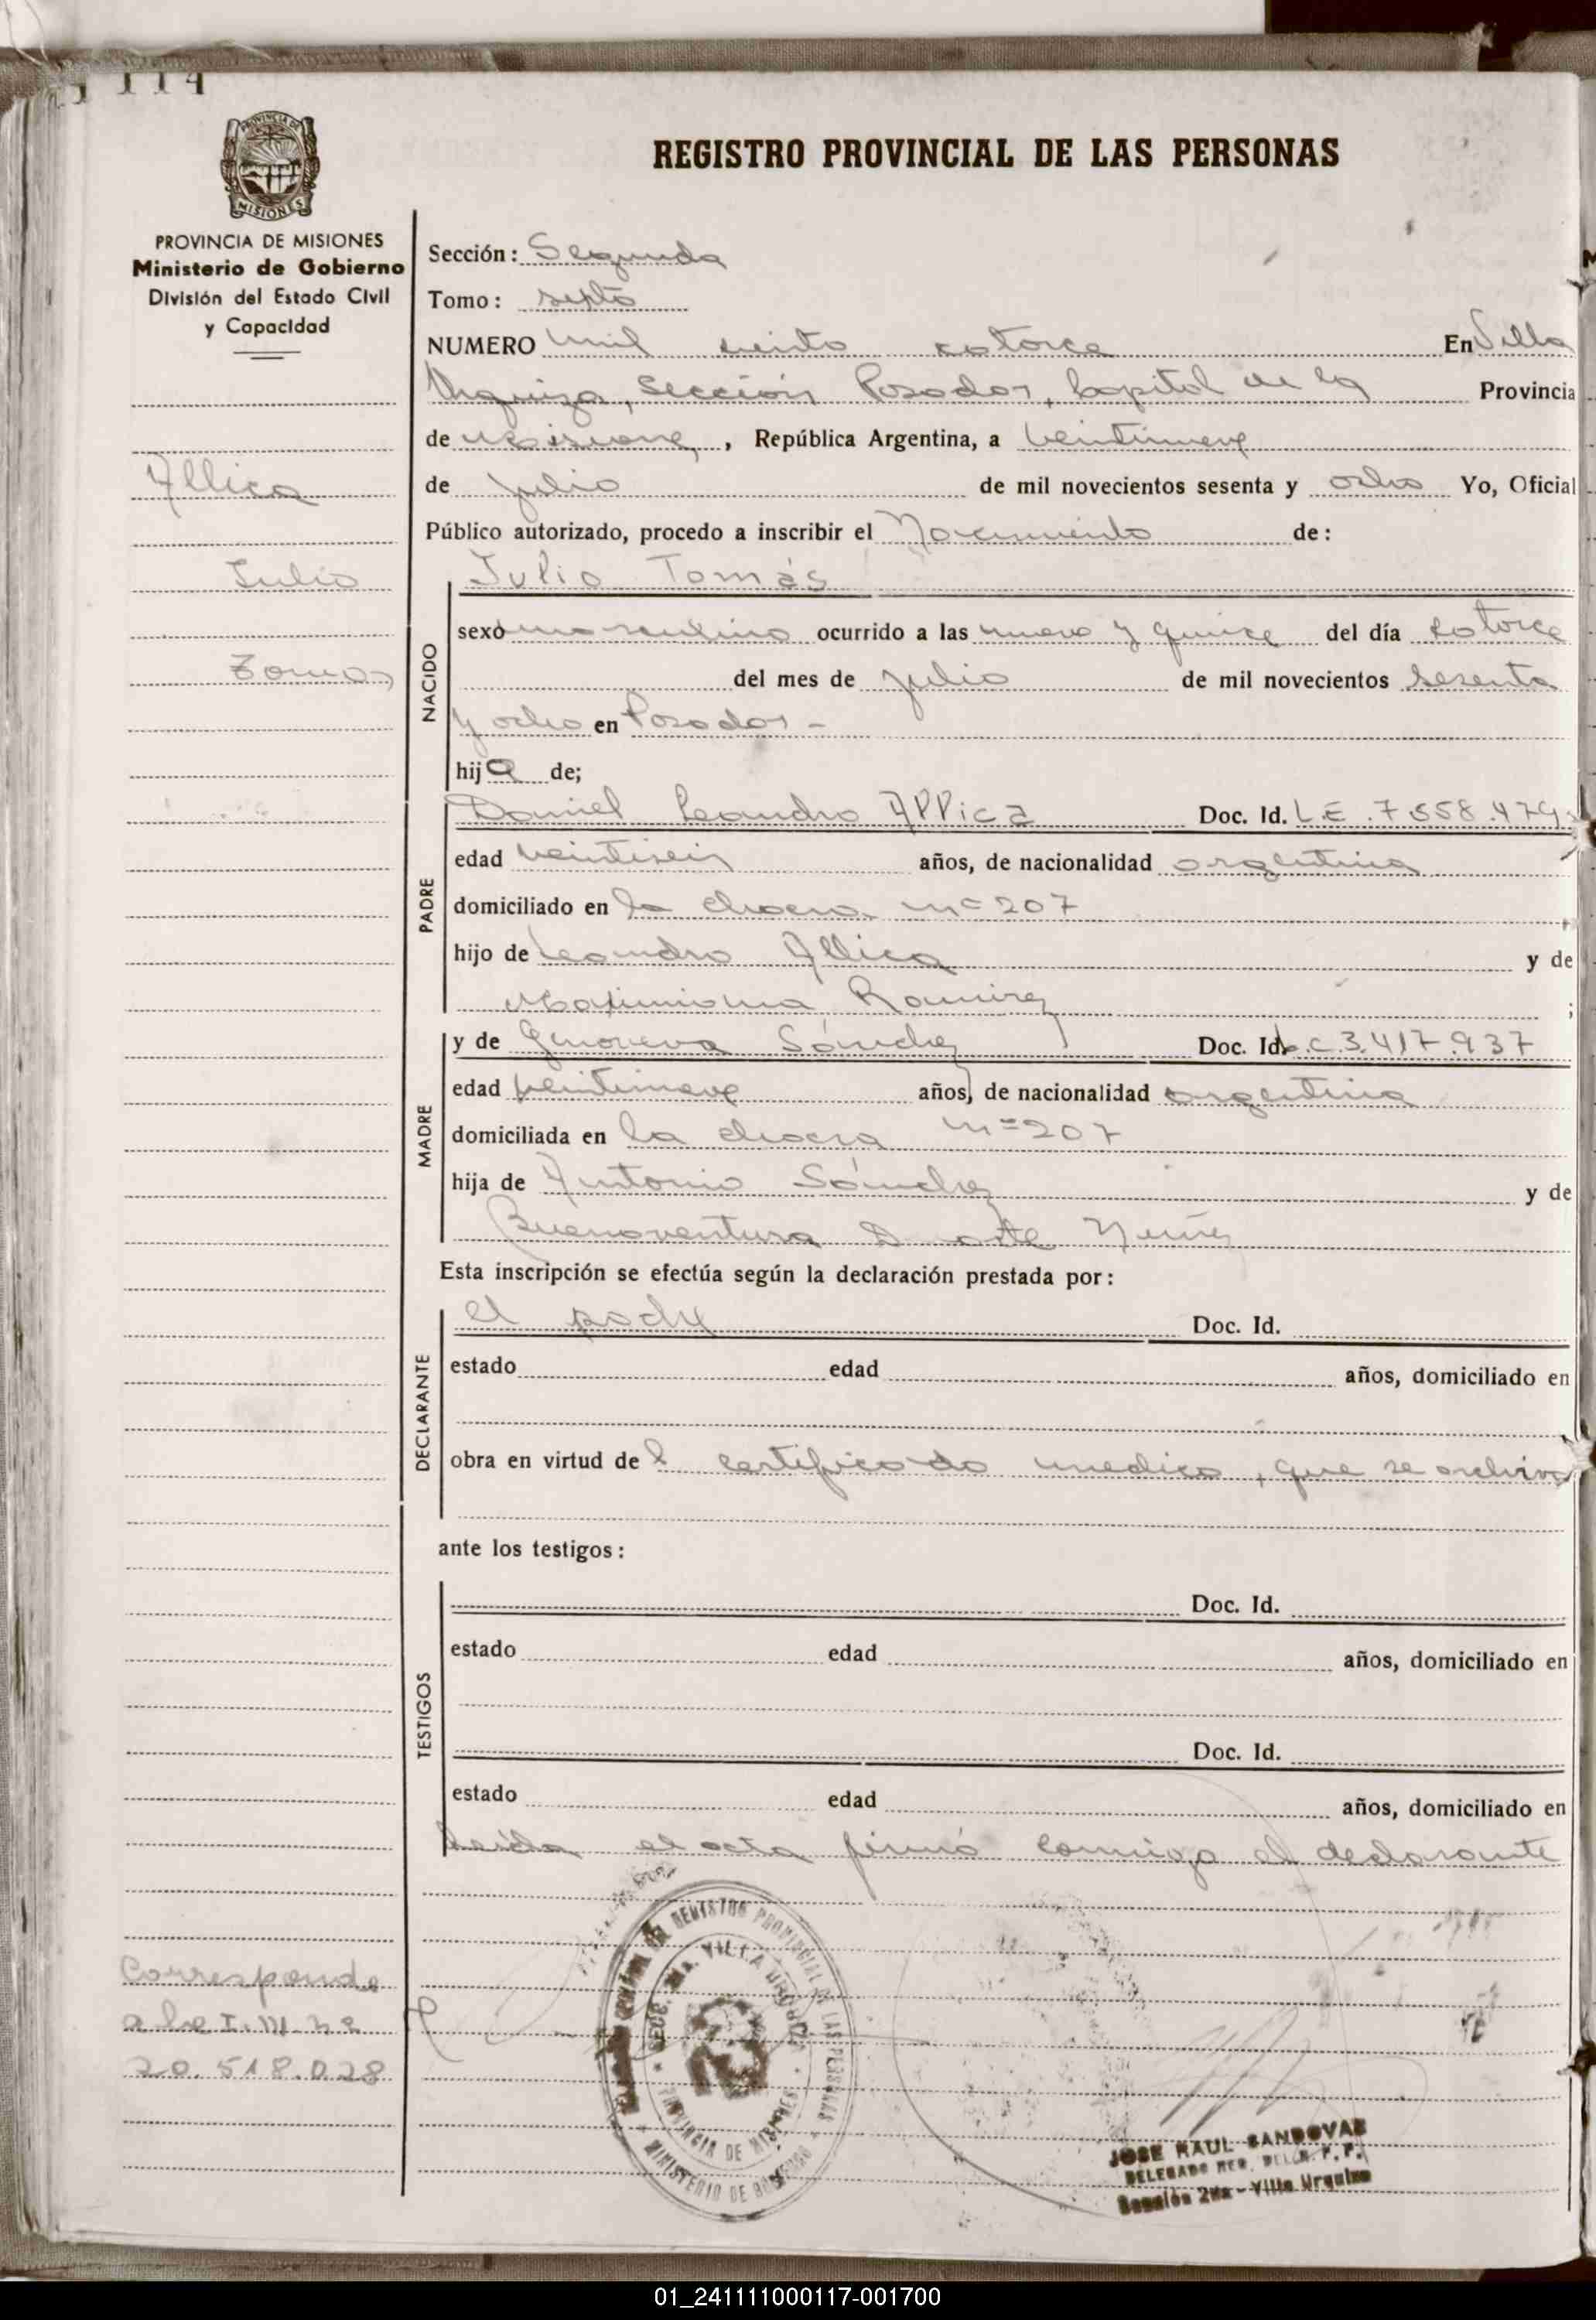 114
PROVINCIA DE MISIONES
REGISTRO PROVINCIAL DE LAS PERSONAS
PROVINCIA DE MISIONES
Ministerio de Gobierno
División del Estado Civil
y Capacidad
Allica
Julio
Tomas
Sección: Segunda
Tomo: septo
NUMERO mil ciento catorce En Villa
Urquiza, Sección Posadas, Capital de la Provincia
de Misiones, República Argentina, a veintinueve
de julio de mil novecientos sesenta y ocho Yo, Oficial
Público autorizado, procedo a inscribir el Nacimiento de:
NACIDO
Julio Tomás
sexo masculino ocurrido a las nueve y quince del día catorce
del mes de julio de mil novecientos sesenta
y ocho en Posadas -
hijo de;
PADRE
Daniel Leandro Allica Doc. Id. L.E. 7.558.479
edad veintiseis años, de nacionalidad argentina
domiciliado en la chacra nº 207
hijo de Leandro Allica y de
Maximiana Ramirez ;
MADRE
y de Genoveva Sánchez Doc. Id. L.C. 3.417.937
edad veintinueve años, de nacionalidad argentina
domiciliada en la chacra nº 207
hija de Antonio Sánchez y de
Buenaventura Duarte Nuñez
Esta inscripción se efectúa según la declaración prestada por:
DECLARANTE
el padre Doc. Id.
estado edad años, domiciliado en
obra en virtud del certificado medico, que se archiva
ante los testigos:
TESTIGOS
Doc. Id.
estado edad años, domiciliado en
Doc. Id.
estado edad años, domiciliado en
Leída el acta firmó conmigo el declarante
Corresponde
a la I. M. Nº
20.518.028
REGISTRO PROVINCIAL DE LAS PERSONAS
SECC. 2da. VILLA URQUIZA
PROVINCIA DE MISIONES
MINISTERIO DE GOBIERNO
JOSE RAUL SANDOVAL
DELEGADO REG. P. P.
Sección 2da - Villa Urquiza
01_241111000117-001700